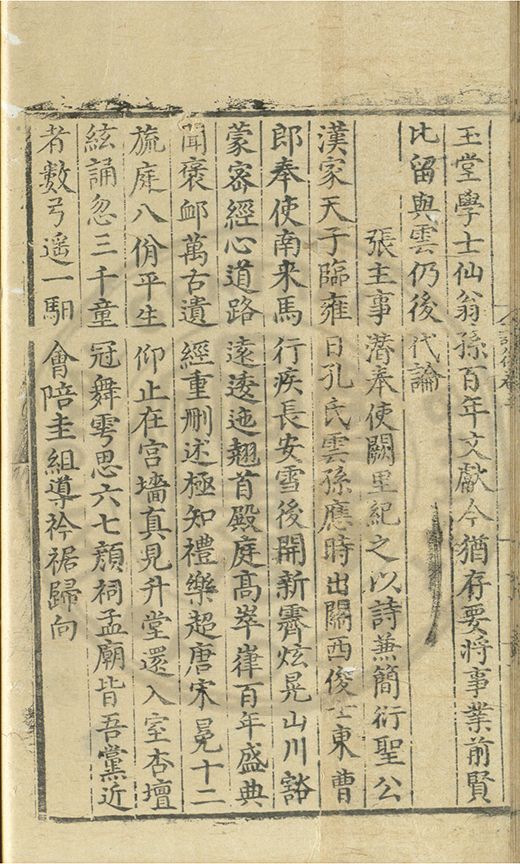 玉堂學士仙翁孫百年文獻今猶存要將事業前賢
比留與雲仍後代論
張主事潛奉使闕里紀之以詩兼簡衍聖公
漢家天子臨雍日孔氏雲孫應時出關西俊士東曹
郎奉使南来馬行疾長安雪後開新霽炫晃山川豁
蒙密經心道路遠逶迤翹首殿庭髙崒嵂百年盛典
聞褒衈萬古遺經重删述極知禮樂超唐宋冕十二
旒庭八佾平生仰止在宫墻真見升堂還入室杏壇
絃誦忽三千童冠舞雩思六七顔祠孟廟皆吾黨近
者數弓遥一馹會陪圭組導衿裾歸向